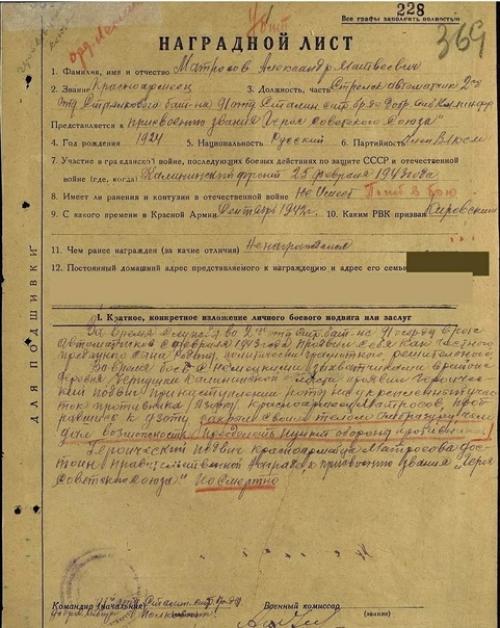 228
Убит
Все графы заполнять полностью
369
орд. Ленина
НАГРАДНОЙ ЛИСТ
1. Фамилия, имя и отчество Матросов Александр Матвеевич
2. Звание Красноармеец 3. Должность, часть Стрелок автоматчик 2го
отд. Стрелкового бат-на 91 отд. Сталин. стр. бр-де добр.
Представляется к присвоению звания "Героя Советского Союза"
4. Год рождения 1924 5. Национальность Русский 6. Партийность член ВЛКСМ
7. Участие в гражданской войне, последующих боевых действиях по защите СССР и отечественной
войне (где, когда) Калининский фронт 25 февраля 1943 года
8. Имеет ли ранения и контузии в отечественной войне Не имеет Погиб в бою
9. С какого времени в Красной Армии Сентябрь 1942г. 10. Каким РВК призван Кировским
11. Чем ранее награжден (за какие отличия) Не награждался
12. Постоянный домашний адрес представляемого к награждению и адрес его семьи
ДЛЯ ПОДШИВКИ
I. Краткое, конкретное изложение личного боевого подвига или заслуг
За время службы во 2ом отд. стр. бат-не 91 бригады в роте
автоматчиков с февраля 1943 года проявил себя как честного
преданного сына родины, политически грамотного, решительного.
За время боя с немецкими захватчиками в районе
деревня Чернушки Калининской области проявил героичес-
кий подвиг при наступлении роты на укрепленный учас-
ток противника (дзоты) Красноармеец Матросов, проб-
равшись к дзоту закрыл своим телом амбразуру чем
дал возможность преодолеть пункт обороны противника
Героический подвиг Красноармейца Матросова дос-
тоин правительственной награды к присвоению звания "Героя
Советского Союза" посмертно
Командир (начальник) Сталин. стр. бр-ды
Военный комиссар
(звание)